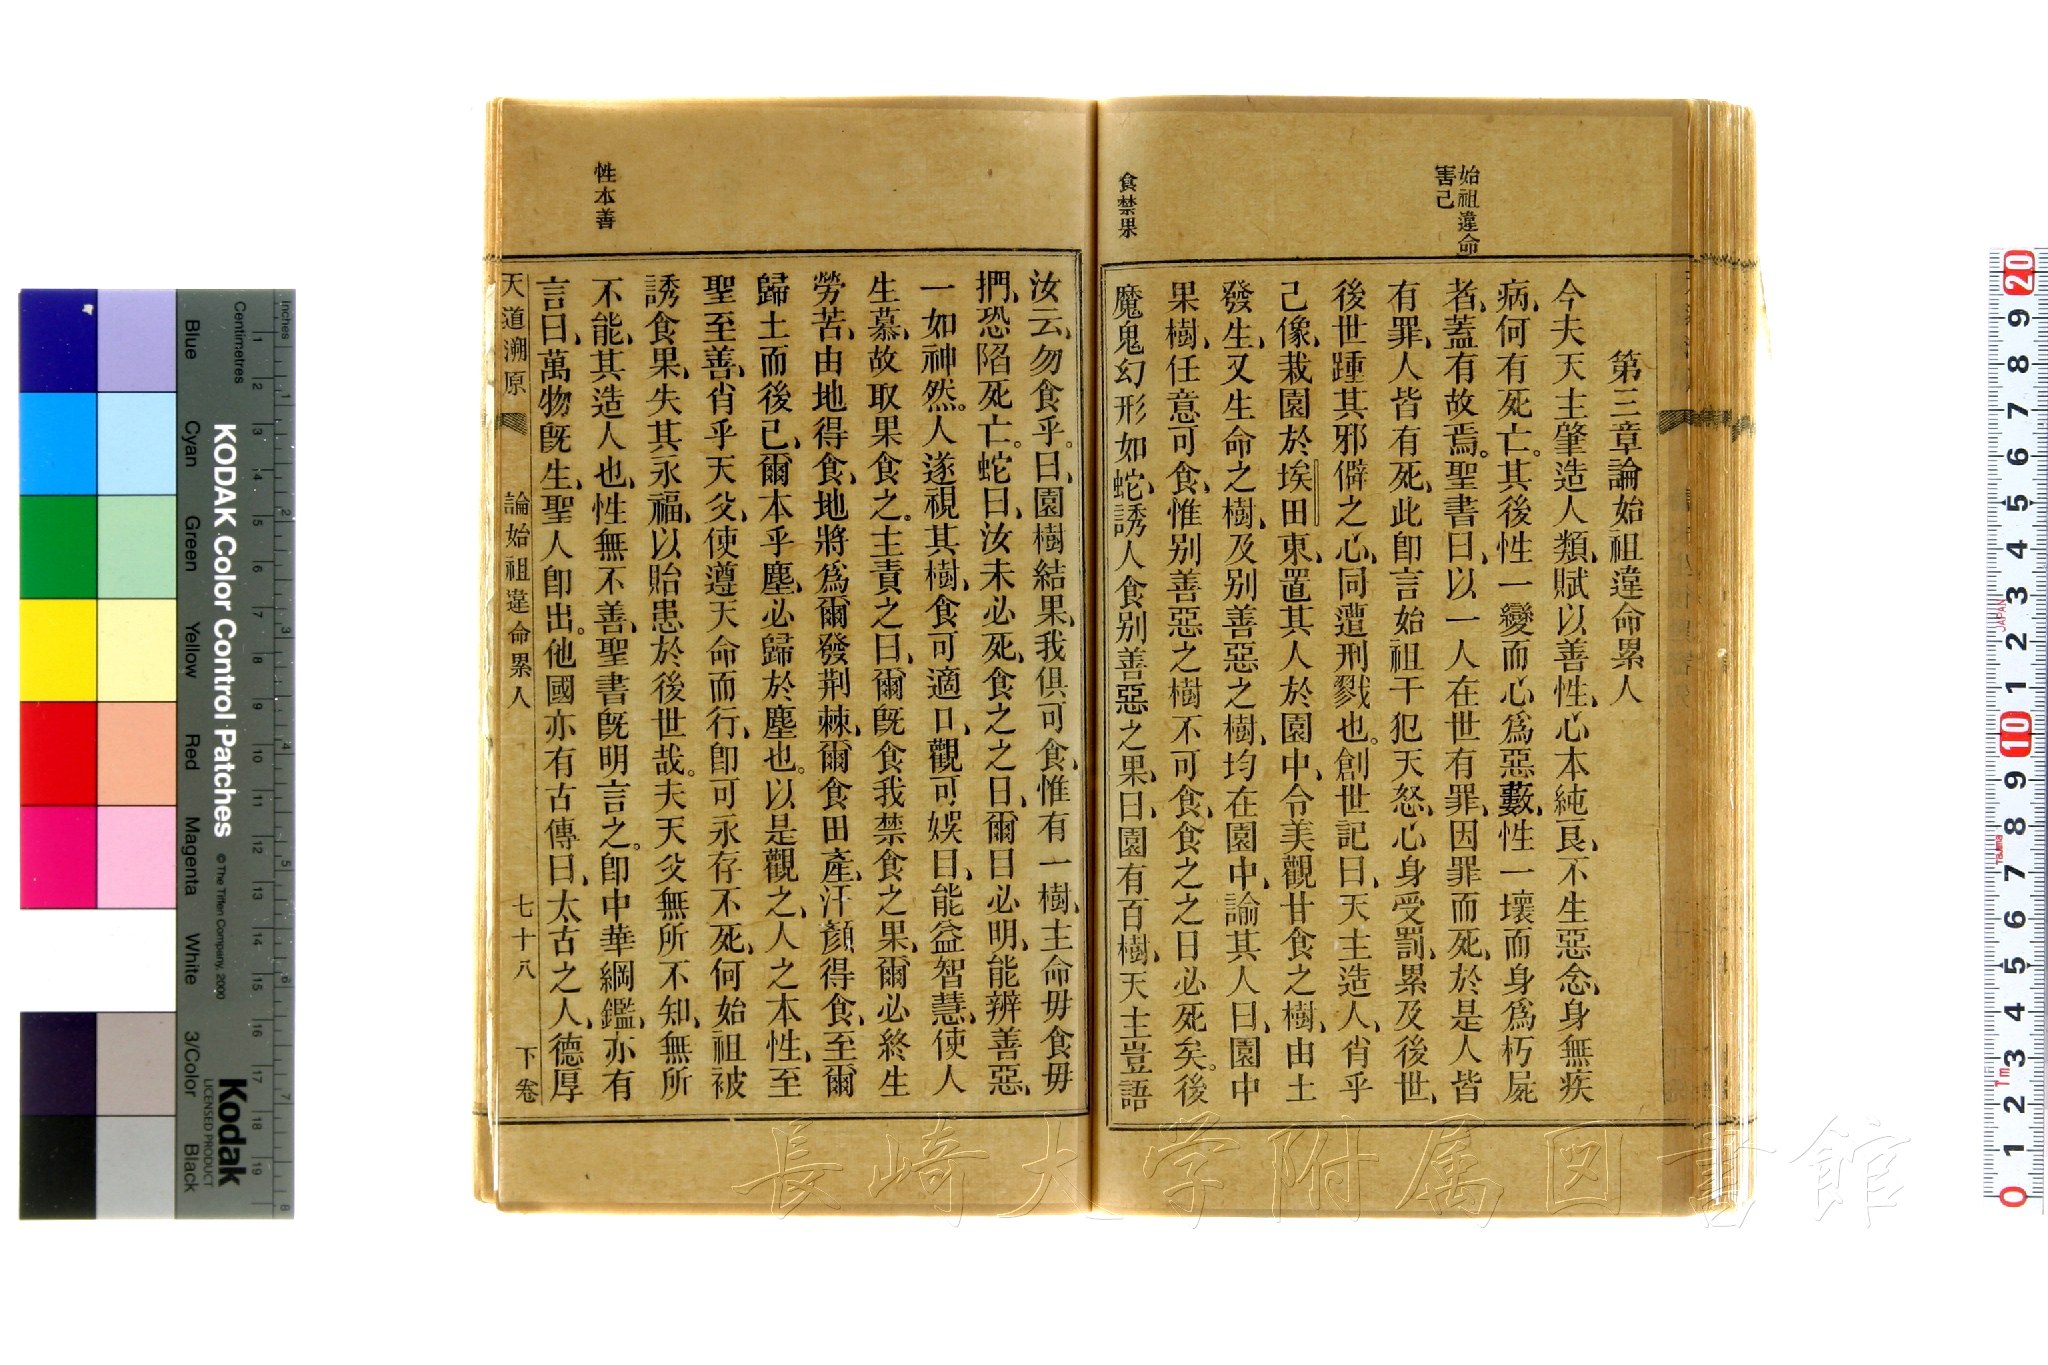 始祖違命
害己
第三章論始祖違命累人
今夫天主肇造人類、賦以善性、心本純良、不生惡念、身無疾
病、何有死亡。其後性一變而心爲惡藪、性一壞而身爲朽屍
者、蓋有故焉。聖書曰、以一人在世有罪、因罪而死、於是人皆
有罪、人皆有死、此卽言始祖干犯天怒、心身受罰、累及後世、
後世踵其邪僻之心、同遭刑戮也。創世記曰、天主造人、肖乎
己像、栽園於埃田東、置其人於園中、令美觀甘食之樹、由土
發生、又生命之樹、及别善惡之樹、均在園中、諭其人曰、園中
果樹、任意可食、惟别善惡之樹不可食、食之之日必死矣。後
食禁果
魔鬼幻形如蛇、誘人食别善惡之果、曰、園有百樹、天主豈語
汝云、勿食乎。曰、園樹結果、我俱可食、惟有一樹、主命毋食毋
捫、恐陷死亡。蛇曰、汝未必死、食之之日、爾目必明、能辨善惡、
一如神然。人遂視其樹、食可適口、觀可娛目、能益智慧、使人
生慕、故取果食之。主責之曰、爾旣食我禁食之果、爾必終生
勞苦、由地得食、地將爲爾發荆棘、爾食田產、汗顏得食、至爾
歸土而後已、爾本乎塵、必歸於塵也。以是觀之、人之本性、至
聖至善、肖乎天父、使遵天命而行、卽可永存不死、何始祖被
誘食果、失其永福、以貽患於後世哉。夫天父無所不知、無所
性本善
不能、其造人也、性無不善、聖書旣明言之。卽中華綱鑑、亦有
言曰、萬物旣生、聖人卽出。他國亦有古傳曰、太古之人、德厚
天道溯原 論始祖違命累人 七十八 下卷
長崎大学附属図書館
Inches
Centimetres
KODAK Color Control Patches
© The Tiffen Company, 2000
Blue
Cyan
Green
Yellow
Red
Magenta
White
3/Color
Black
Kodak
LICENSED PRODUCT